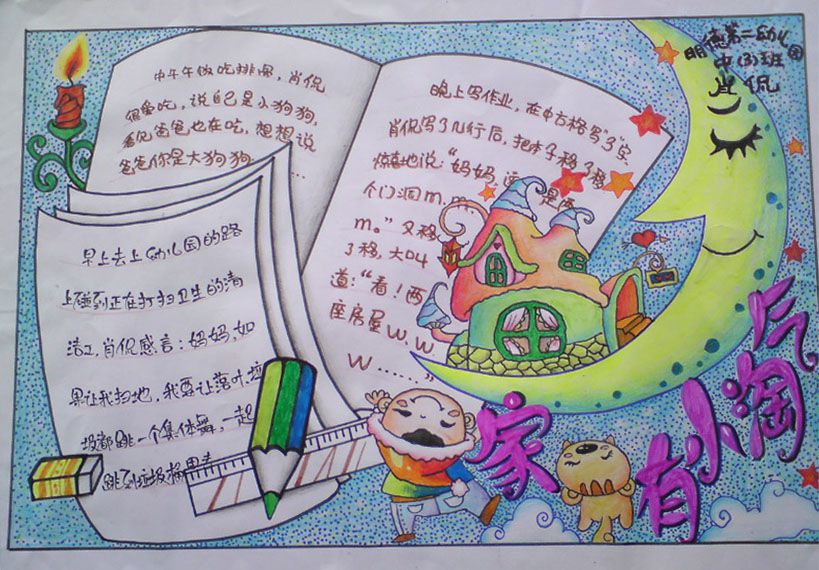 明德第二幼儿园
中(3)班
肖侃
中午午饭吃排骨,肖侃
很爱吃,说自己是小狗狗,
看见爸爸也在吃,想想说
爸爸你是大狗狗……
晚上写作业,在中方格写"3"字
肖侃写了几行后,把本子移了移
惊喜地说:"妈妈,这 是两
个门洞m.m.
m。"又移
了移,大叫
道:"看!两
座房屋W.W.
W……"
早上去上幼儿园的路
上碰到正在打扫卫生的清
洁工,肖侃感言:妈妈,如
果让我扫地,我要让落叶垃
圾都跳一个集体舞,一起
跳到垃圾桶里去
家有小淘气